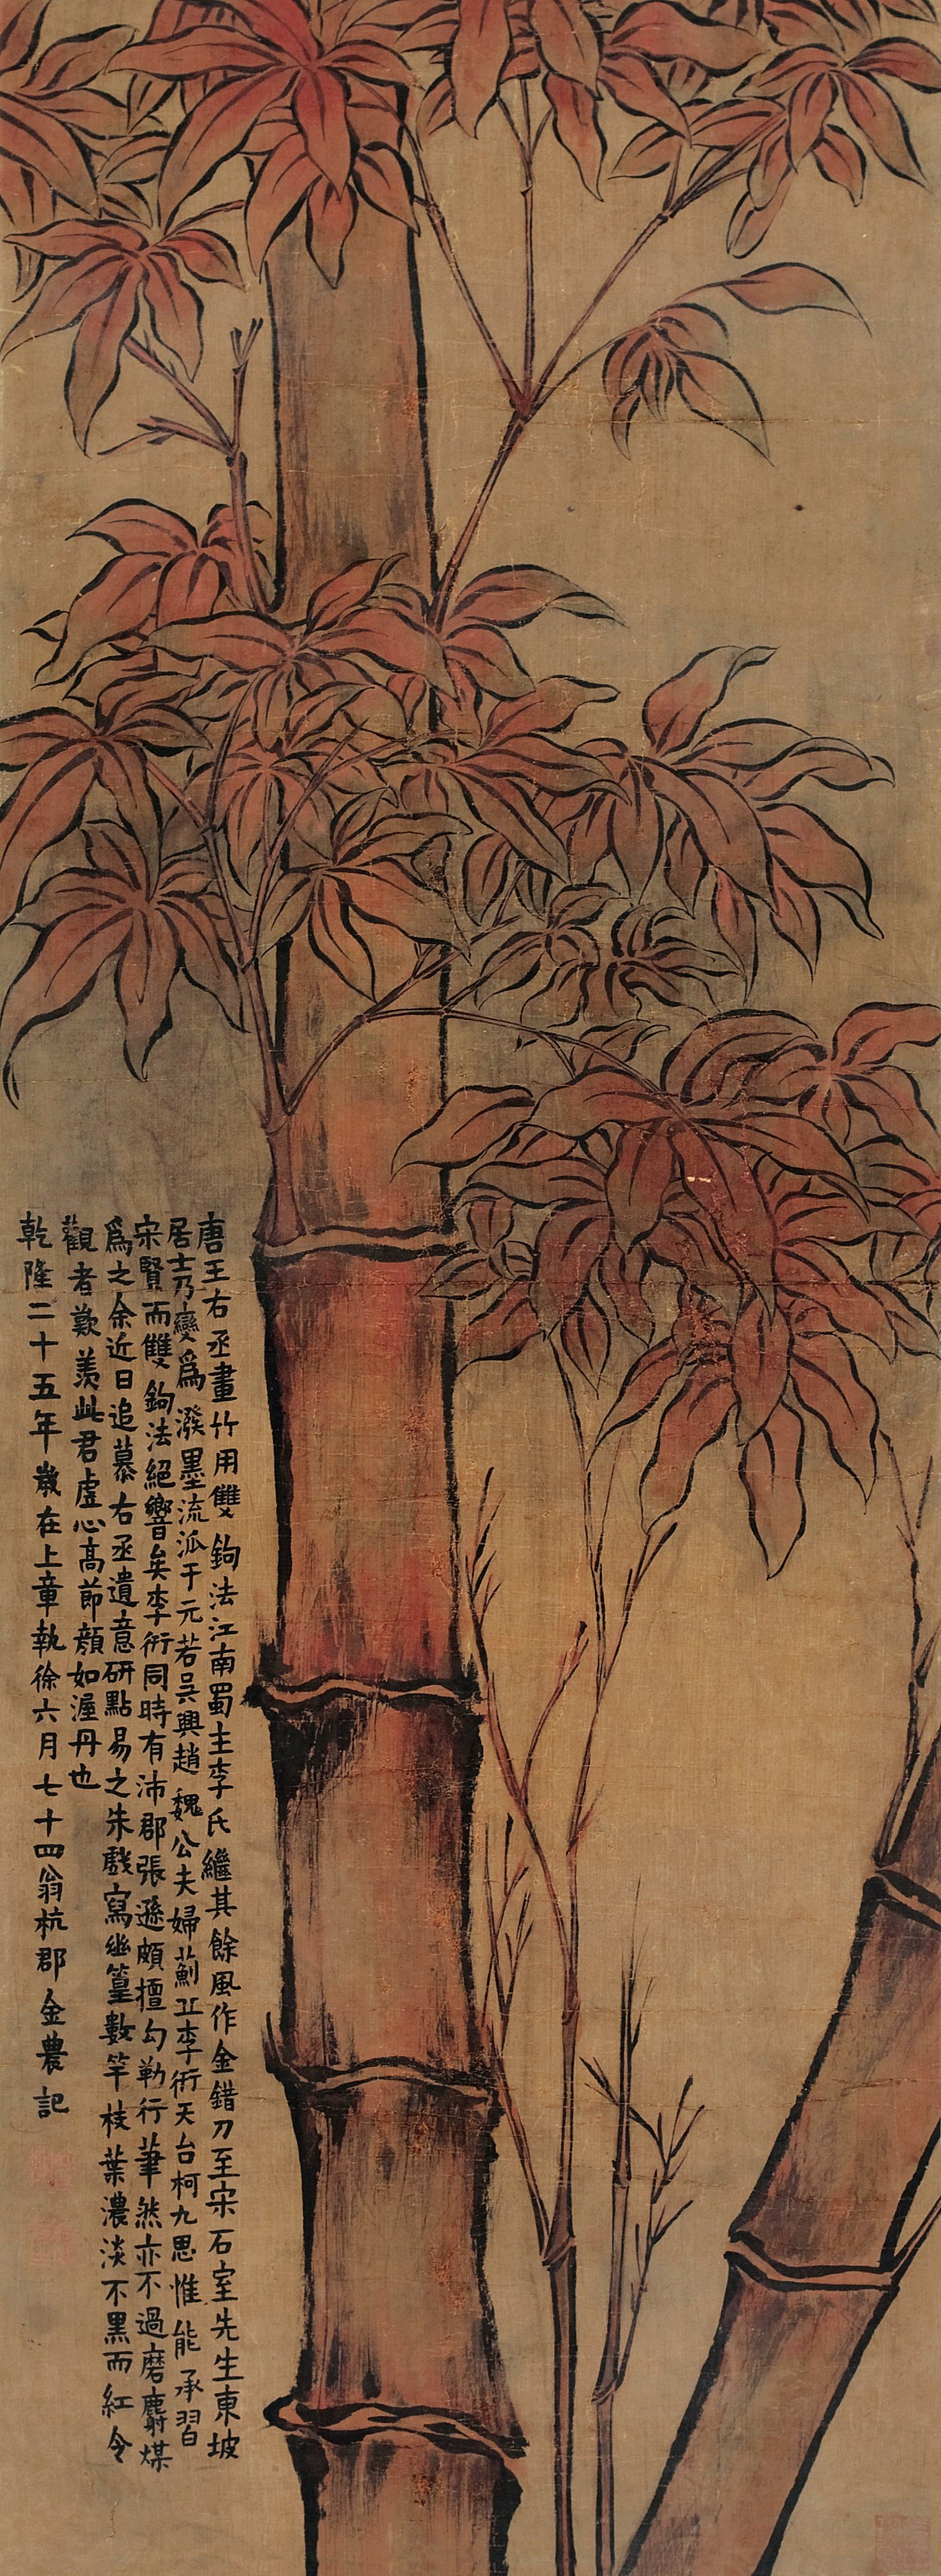 唐王右丞畫竹用雙鉤法江南蜀主李氏繼其餘風作金錯刀至宋石室先生東坡
居士乃變爲潑墨流派于元若吳興趙魏公夫婦薊丘李衎天台柯九思惟能承習
宋賢而雙鉤法絕響矣李衎同時有沛郡張遜頗擅勾勒行筆然亦不過磨麝煤
爲之余近日追慕右丞遺意研點易之朱戲寫幽篁數竿枝葉濃淡不黑而紅令
觀者歎羨此君虛心高節顏如渥丹也
乾隆二十五年歲在上章執徐六月七十四翁杭郡金農記